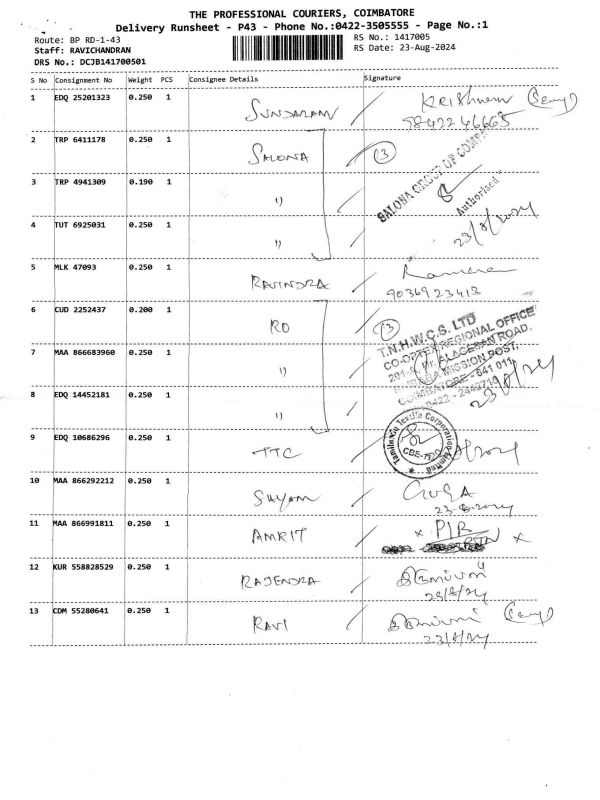 THE PROFESSIONAL COURIERS, COIMBATORE
Delivery Runsheet - P43 - Phone No.:0422-3505555 - Page No.:1
Route: BP RD-1-43
RS No.: 1417005
Staff: RAVICHANDRAN
RS Date: 23-Aug-2024
DRS No.: DCJB141700501
S No Consignment No Weight PCS Consignee Details Signature
1 EDQ 25201323 0.250 1 SUNDARAM
2 TRP 6411178 0.250 1 SALONA (3)
SALONA GROUP OF COMPA
Authorised
23/8/2024
3 TRP 4941309 0.190 1 ")
4 TUT 6925031 0.250 1 ")
5 MLK 47093 0.250 1 RAVINDRA
9036923413
6 CUD 2252437 0.200 1 RO (3)
T.N.H.W.C.S. LTD
CO-OPTEX REGIONAL OFFICE
MISSION POST,
COIMBATORE - 641 011
7 MAA 866683960 0.250 1 ")
8 EDQ 14452181 0.250 1 ")
9 EDQ 10686296 0.250 1 TTC
Tamilnadu Textile Corporation Limited
10 MAA 866292212 0.250 1 SHYAM
23.8.2024
11 MAA 866991811 0.250 1 AMRIT x x
12 KUR 558828529 0.250 1 RAJENDRA
23/8/24
13 CDM 55280641 0.250 1 RAVI
23/8/24